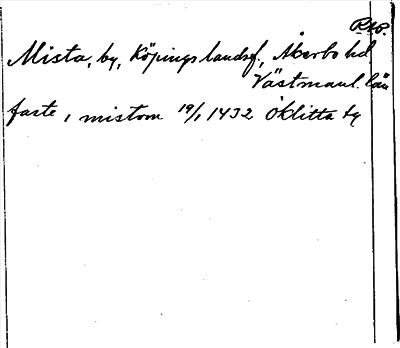 RAp.
Mista, by, Köpings landsf., Åkerbo hd
Västmanl. län
faste, i mistom 19/1 1432 Öklitta ty